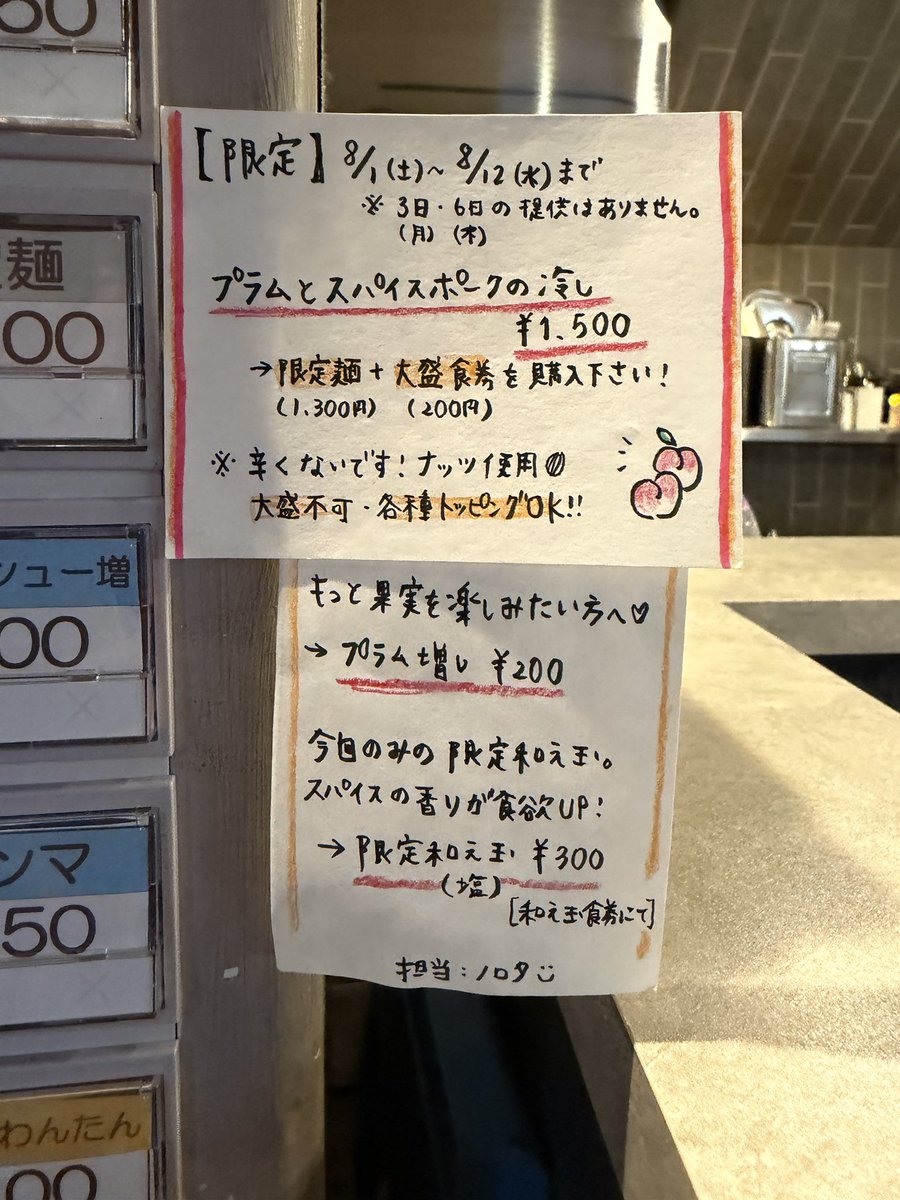 【限定】8/1(土)~8/12(水)まで
※3日・6日の提供はありません。
(月)(木)
プラムとスパイスポークの冷し
¥1.500
→限定麺+大盛食券を購入下さい!
(1.300円) (200円)
※辛くないです!ナッツ使用
大盛不可・各種トッピングOK!!
もっと果実を楽しみたい方へ♡
→プラム増し ¥200
今日のみの限定和え玉。
スパイスの香りが食欲UP!
→限定和え玉 ¥300
(塩)
[和え玉食券にて]
担当:ノロタ
麺
00
シュー増
00
ンマ
50
わんたん
00